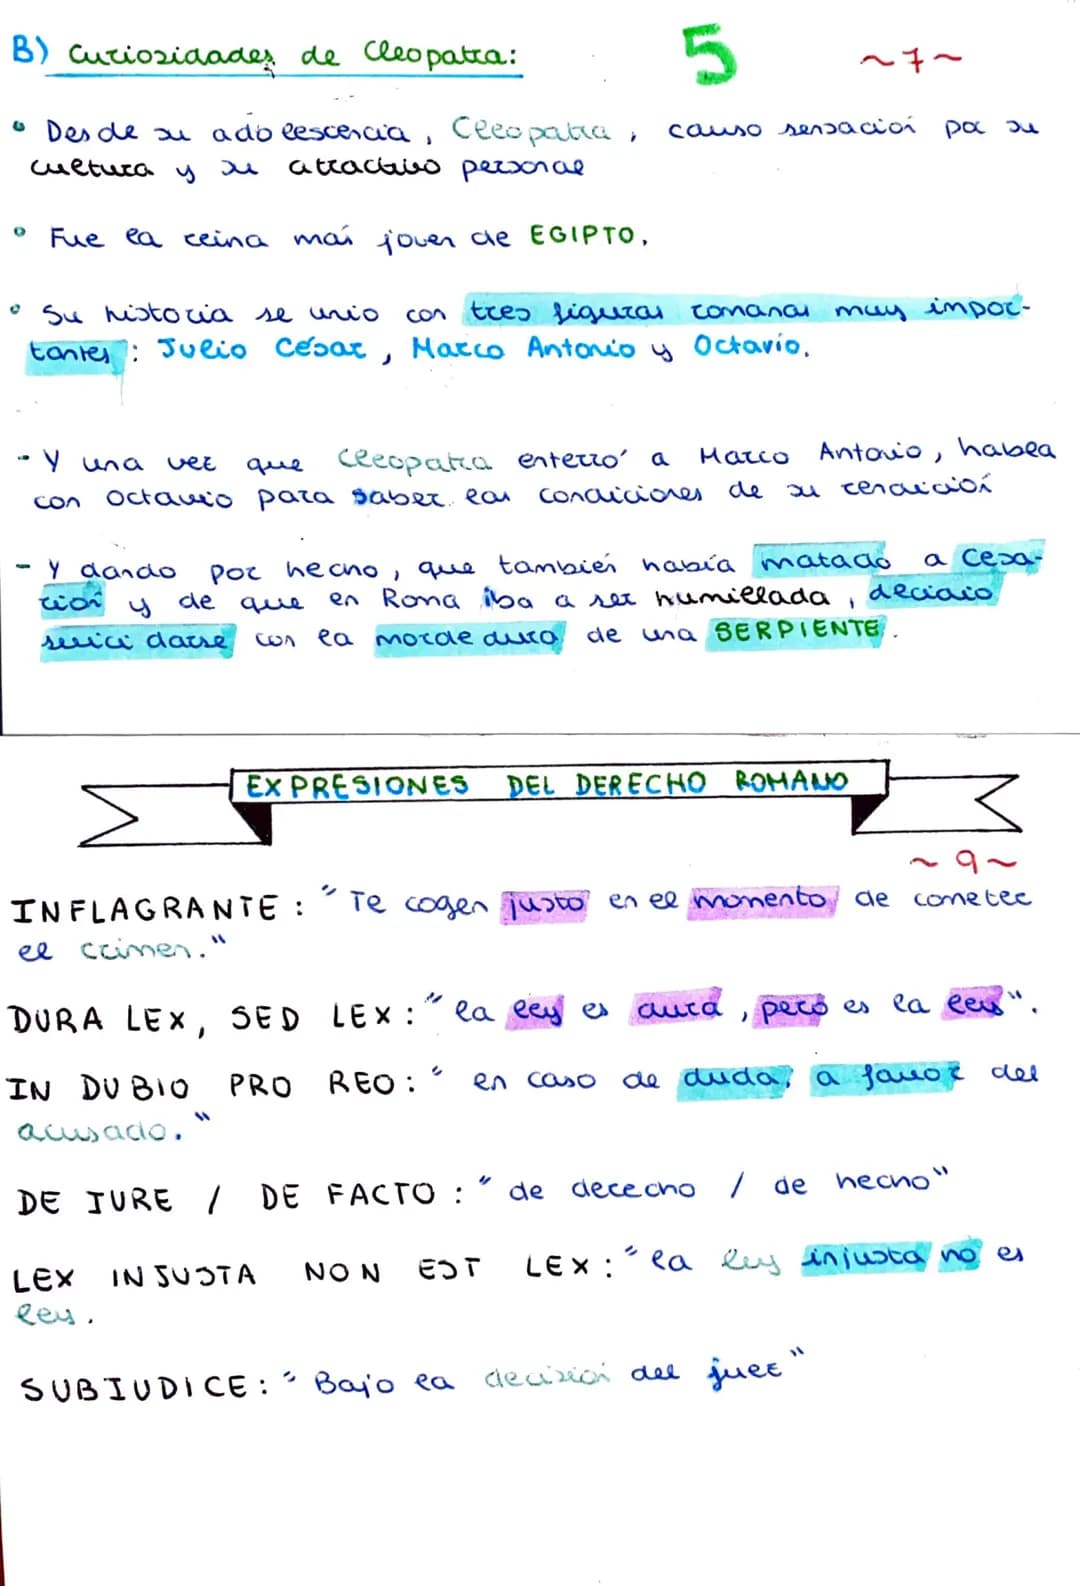 B) Curiosidades de Cleopatra:
5
~7~
• Desde su adolescencia, Cleopatra, causo sensación por su
cultura y su atractivo personal
• Fue la reina más joven de EGIPTO.
• Su historia se unio con tres figuras romanas muy impor-
tantes: Julio César, Marco Antonio y Octavio.
- Y una vez que Cleopatra enterró a Marco Antonio, habla
con Octavio para saber las condiciones de su rendición
- Y dando por hecho, que también había matado a Cesa-
rión y de que en Roma iba a ser humillada, decidio
suicidarse con la mordedura de una SERPIENTE.
EXPRESIONES DEL DERECHO ROMANO
~9~
INFLAGRANTE: "Te cogen justo en el momento de cometer
el crimen."
DURA LEX, SED LEX: "la ley es dura, pero es la ley".
IN DUBIO PRO REO: "en caso de duda, a favor del
acusado."
DE IURE / DE FACTO: "de derecho / de hecho"
LEX INJUSTA NON EST LEX: "la ley injusta no es
ley.
SUBIUDICE: "Bajo la decisión del juez"